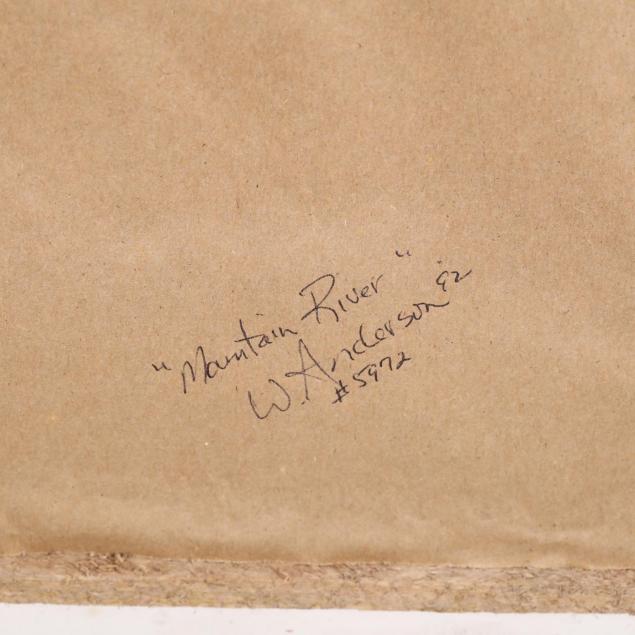 "Mountain River"
W. Anderson '92
#5972